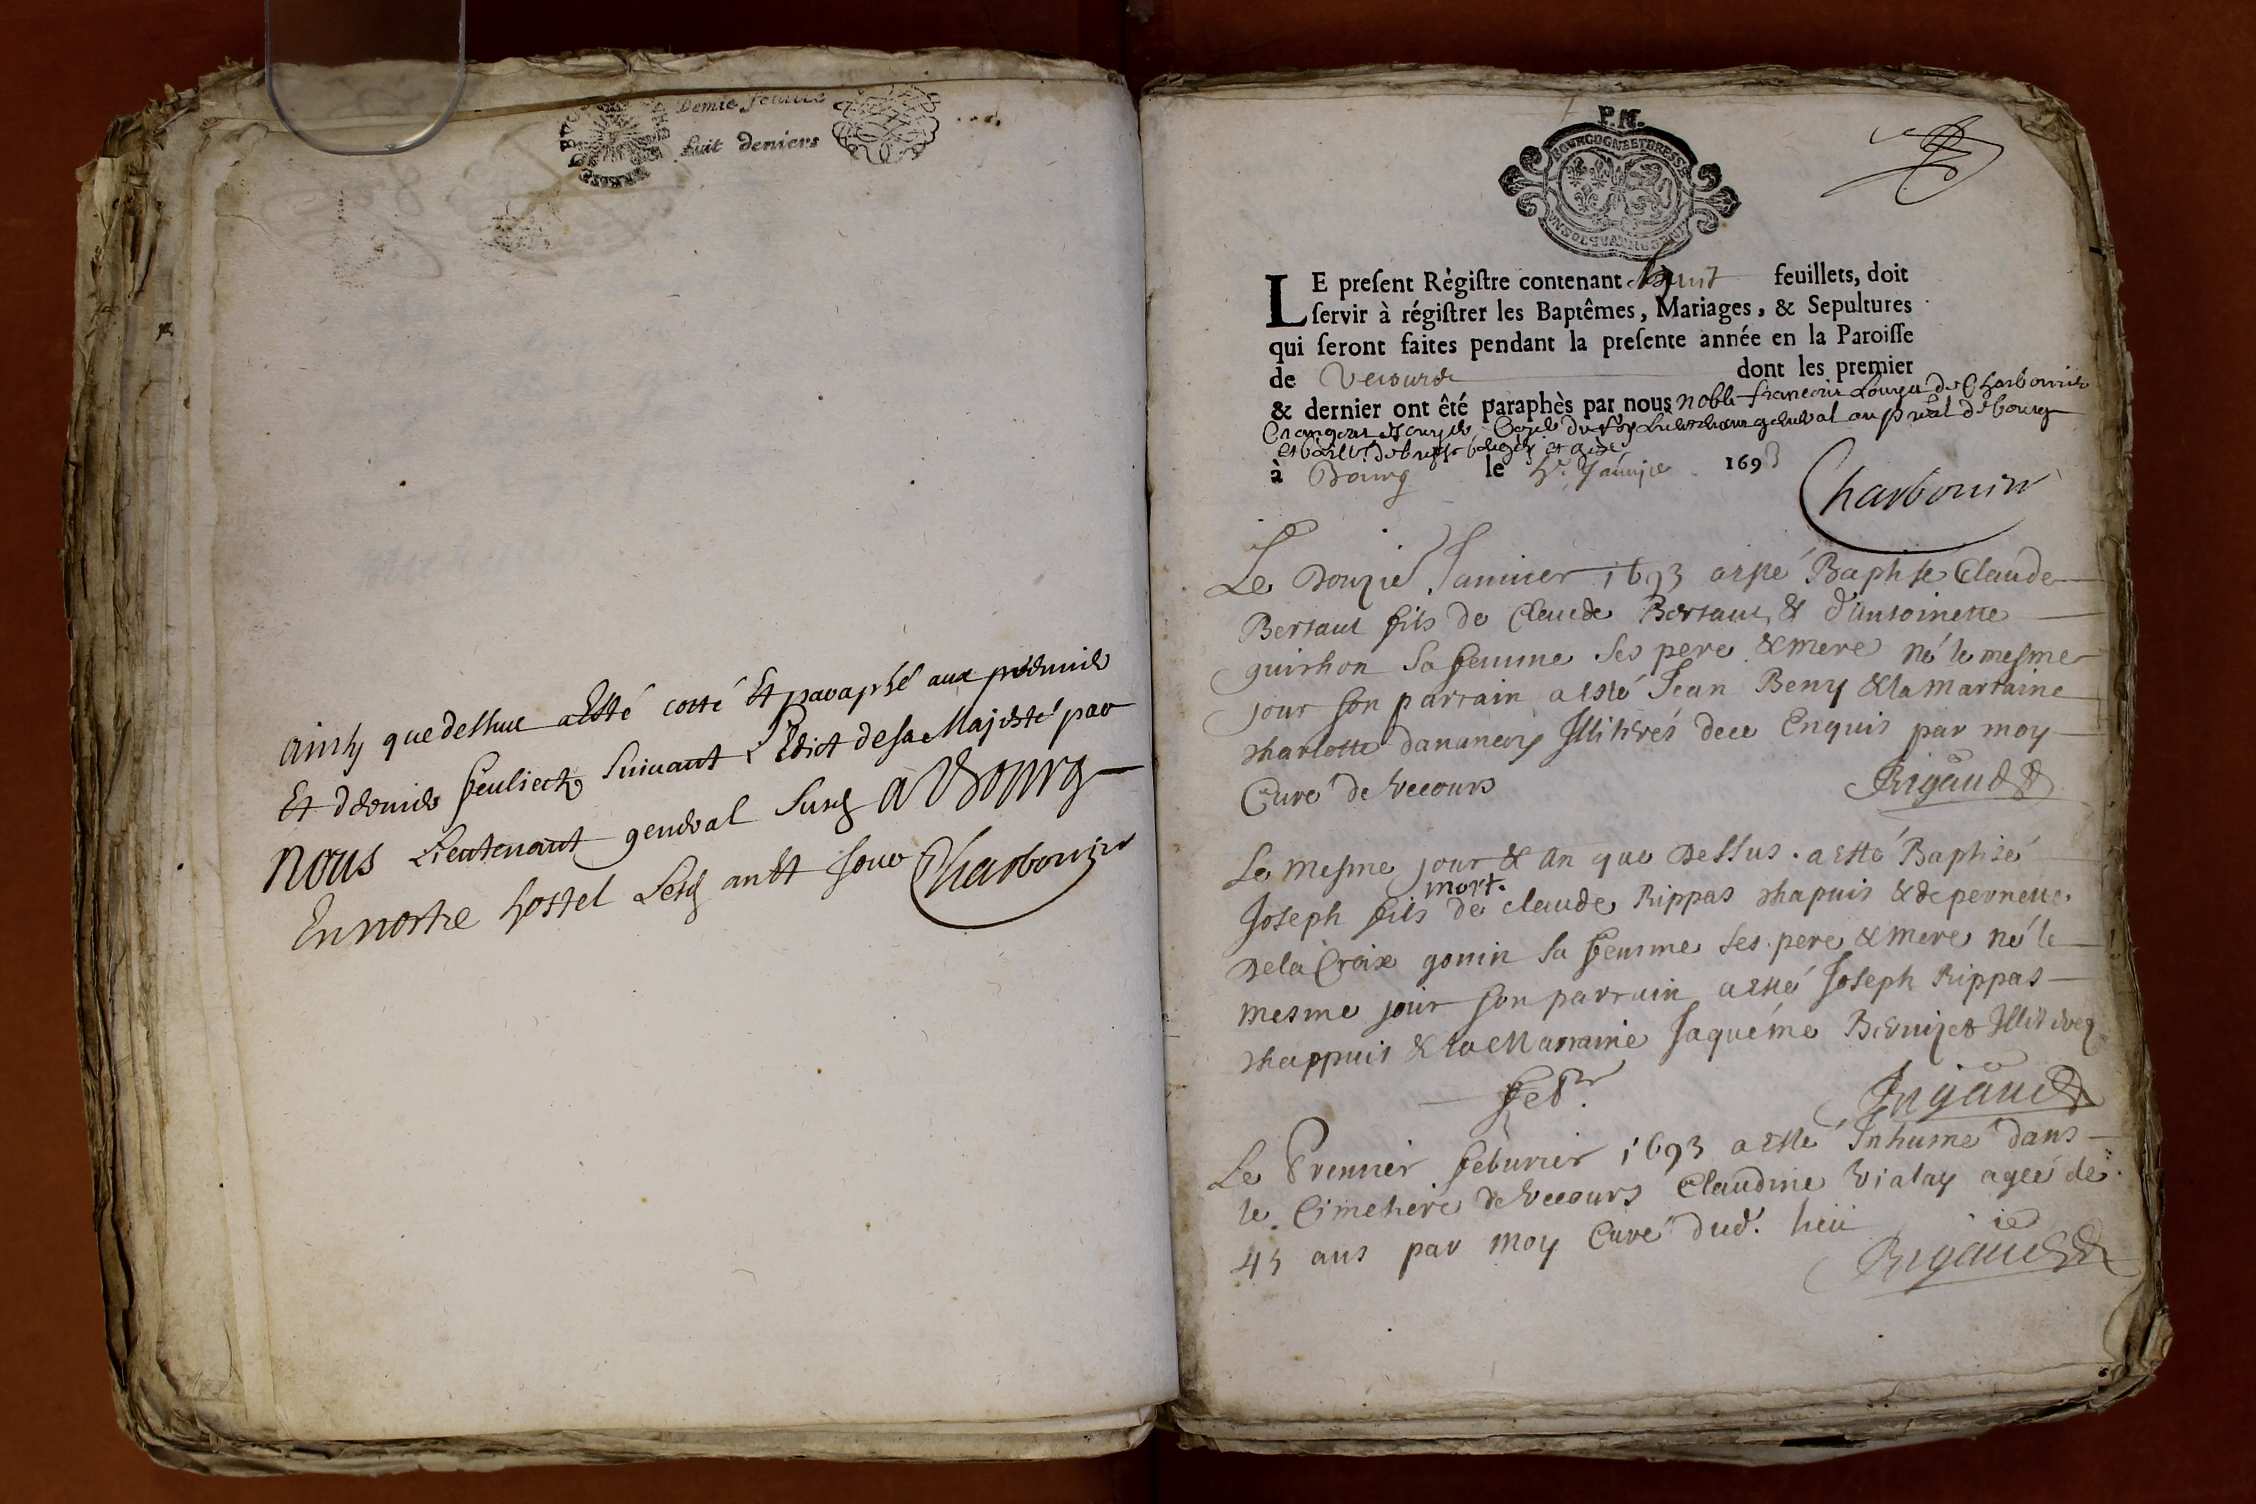 Demie feuille
huit deniers
Ainsy que dessus a Esté cotté Et paraphé aux premier
Et dernier feuliects suivant L'Edict de sa Majesté par
Nous Lieutenant general susd A Bourg
En nostre hostel Lesd an et jour Charbonnier
P.M.
BOURGOGNE ET BRESSE
LE present Régistre contenant huit feuillets, doit
servir à régistrer les Baptêmes, Mariages, & Sepultures
qui seront faites pendant la presente année en la Paroisse
de Vecours dont les premier
& dernier ont êté paraphès par nous noble francois de Charbonnier
Crangeac du Roy Lieutenant general au de bourg
et
à Bourg le Janvier 1693
Charbonnier
Le Douzie Janvier 1693 a esté Baptise Claude
Bertaut fils de Claude Bertaut & d'Antoinette
guichon sa femme ses pere & mere né le mesme
jour son parrain a esté Jean Beny & la marraine
charlotte dananciy Illiterés de ce Enquis par moy
Curé de Vecours Rigaud
Le mesme jour & an que dessus a esté Baptisé
mort.
Joseph fils de claude Rippas chapuis & de pernette
Dela Croix gonin sa femme ses pere & mere né le
mesme jour son parrain a esté Joseph Rippas
chappuis & la Marraine Jaquéme Illiterez
feb.r Rigaud
Le Premier feburier 1693 a esté Inhumé dans
le Cimetiere de Vecours Claudine Vialay agée de
45 ans par moy Curé dud. lieu
Rigaud